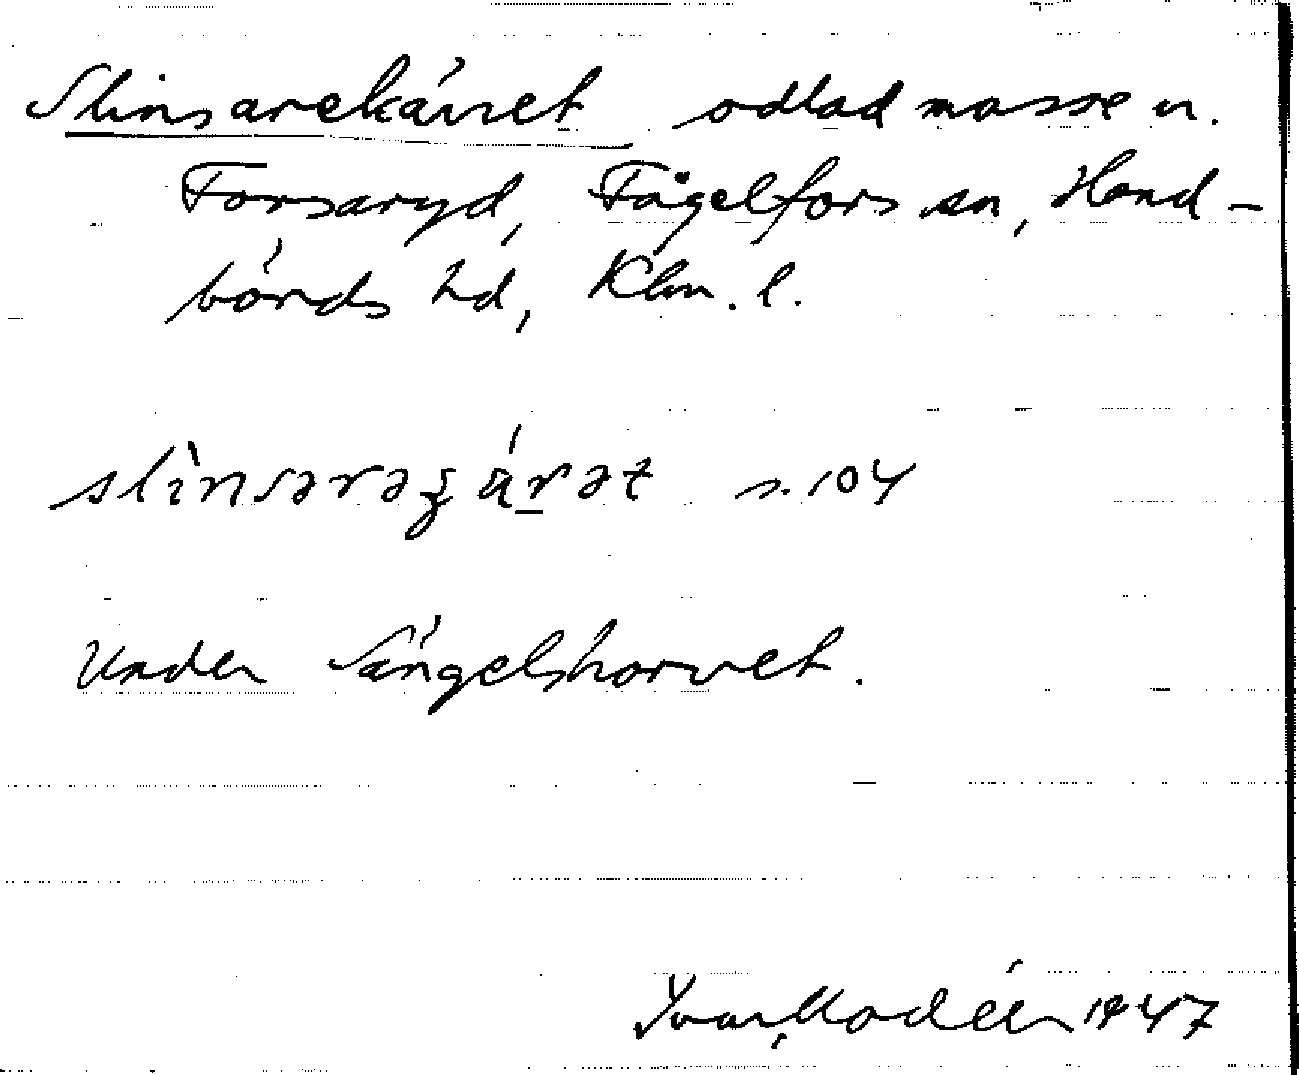 Slinsarekärret odlad mosse u.
Forsaryd, Fågelfors sn, Hand-
börds hd, Klm. l.
slìnsərəgä́rət s. 104
Under Sängelshorvet.
Ivar Modéer 1947